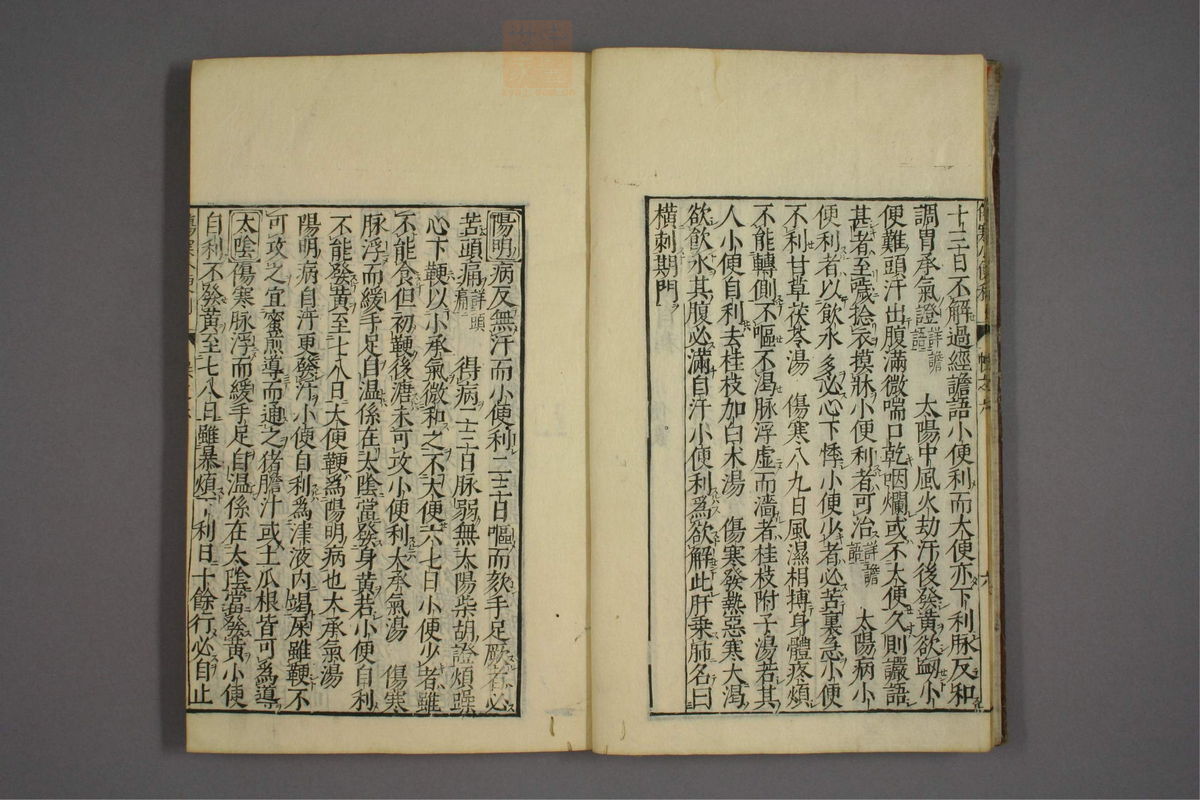 十三日不解過經譫語小便利而大便亦下利脉反和
調胃承氣證詳譫語　太陽中風火劫汗後發黃欲衂小
便難頭汗出腹滿微喘口乾咽爛或不大便久則讝語
甚者至噦捻衣摸牀小便利者可治詳譫語　太陽病小
便利者以飲水多必心下悸小便少者必苦裏急小便
不利甘草茯苓湯　傷寒八九日風濕相摶身體疼煩
不能轉側不嘔不渴脉浮虛而濇者桂枝附子湯若其
人小便自利去桂枝加白木湯　傷寒發熱惡寒大渴
欲飲水其腹必滿自汗小便利爲欲解此肝乗肺名曰
橫刺期門
陽明病反無汗而小便利二三日嘔而欬手足厥者必
苦頭痛詳頭痛　得病二三日脉弱無太陽柴胡證煩躁
心下鞕以小承氣微和之不大便六七日小便少者雖
不能食但初鞕後溏未可攻小便利大承氣湯　傷寒
脉浮而緩手足自温係在太陰當發身黃若小便自利
不能發黃至七八日大便鞕爲陽明病也大承氣湯
陽明病自汗更發汗小便自利爲津液内竭屎雖鞕不
可攻之宜蜜煎導而通之猪膽汁或土瓜根皆可爲導
太陰傷寒脉浮而緩手足自温係在太陰當發黃小便
自利不發黃至七八日雖暴煩下利日十餘行必自止